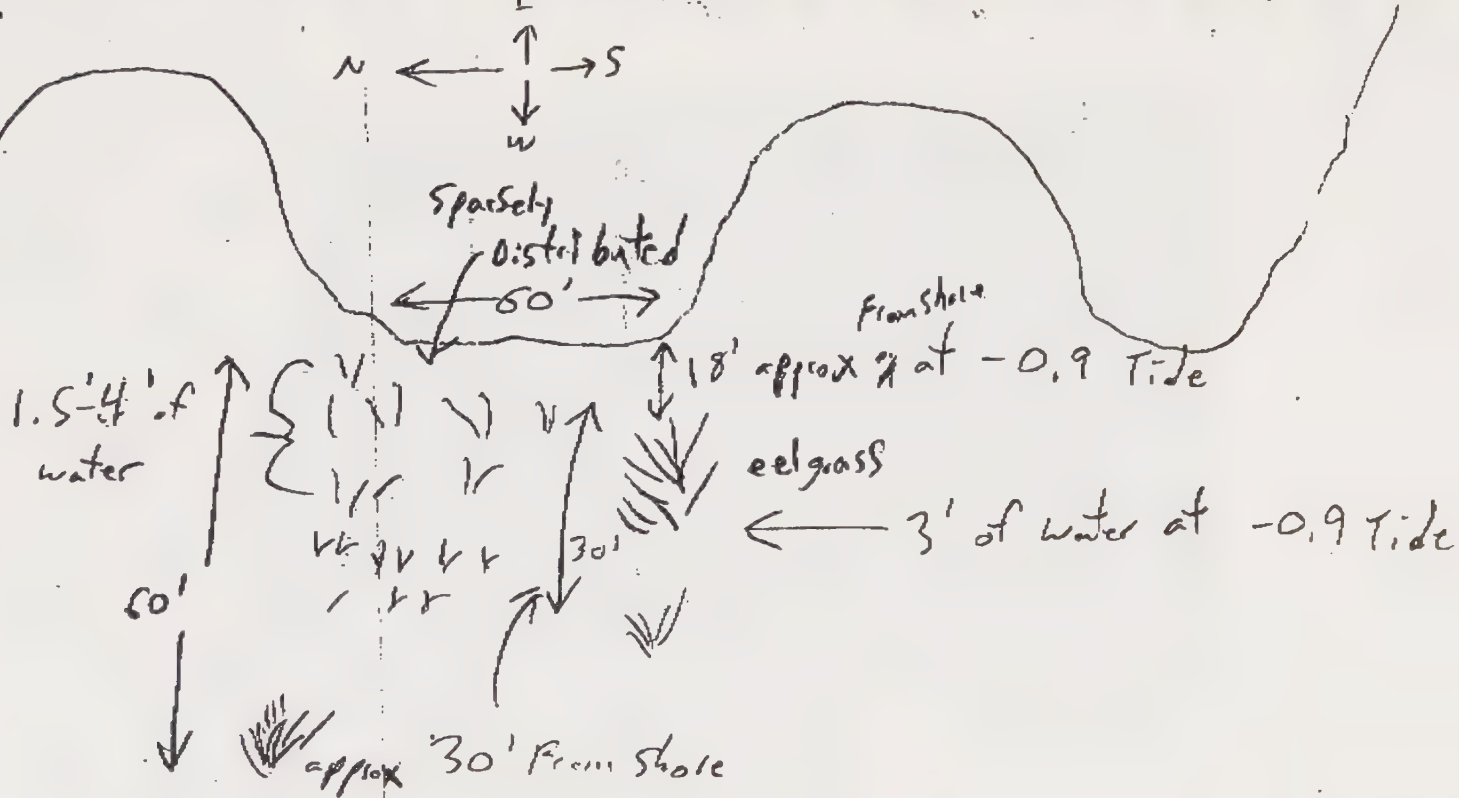 N
S
W
Sparsely
Distributed
60'
From Shore
18' approx at -0.9 Tide
1.5'-4' of
water
eelgrass
3' of water at -0.9 Tide
30'
60'
approx 30' From Shore